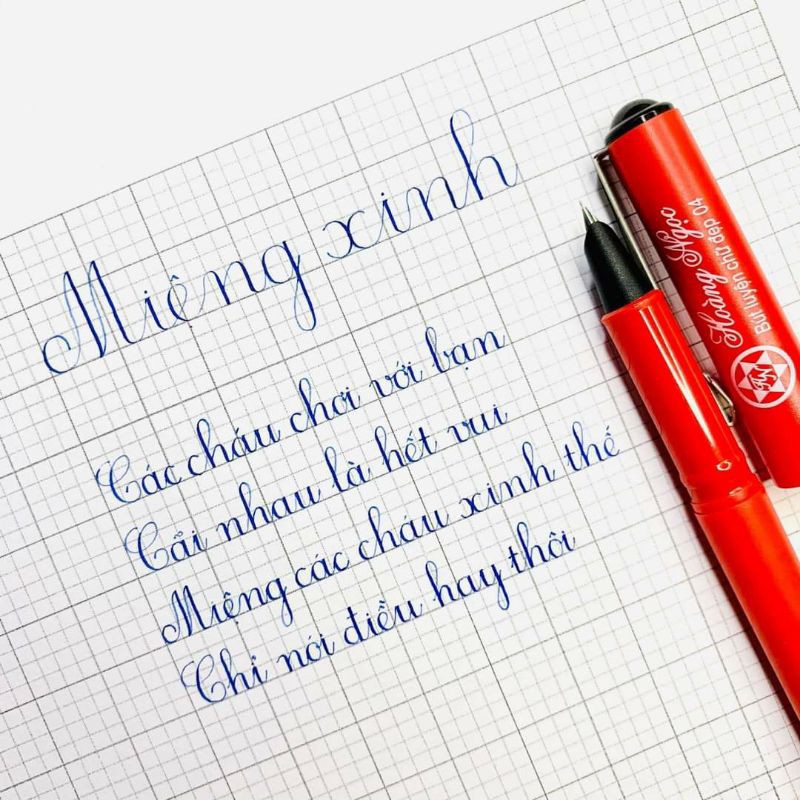 Miệng xinh
Các cháu chơi với bạn
Cãi nhau là hết vui
Miệng các cháu xinh thế
Chỉ nói điều hay thôi
Hoàng Ngọc
Bút luyện chữ đẹp 04